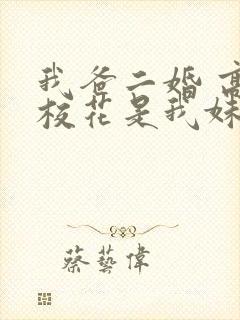 我爸二婚高
校花是我妹
蔡藝偉